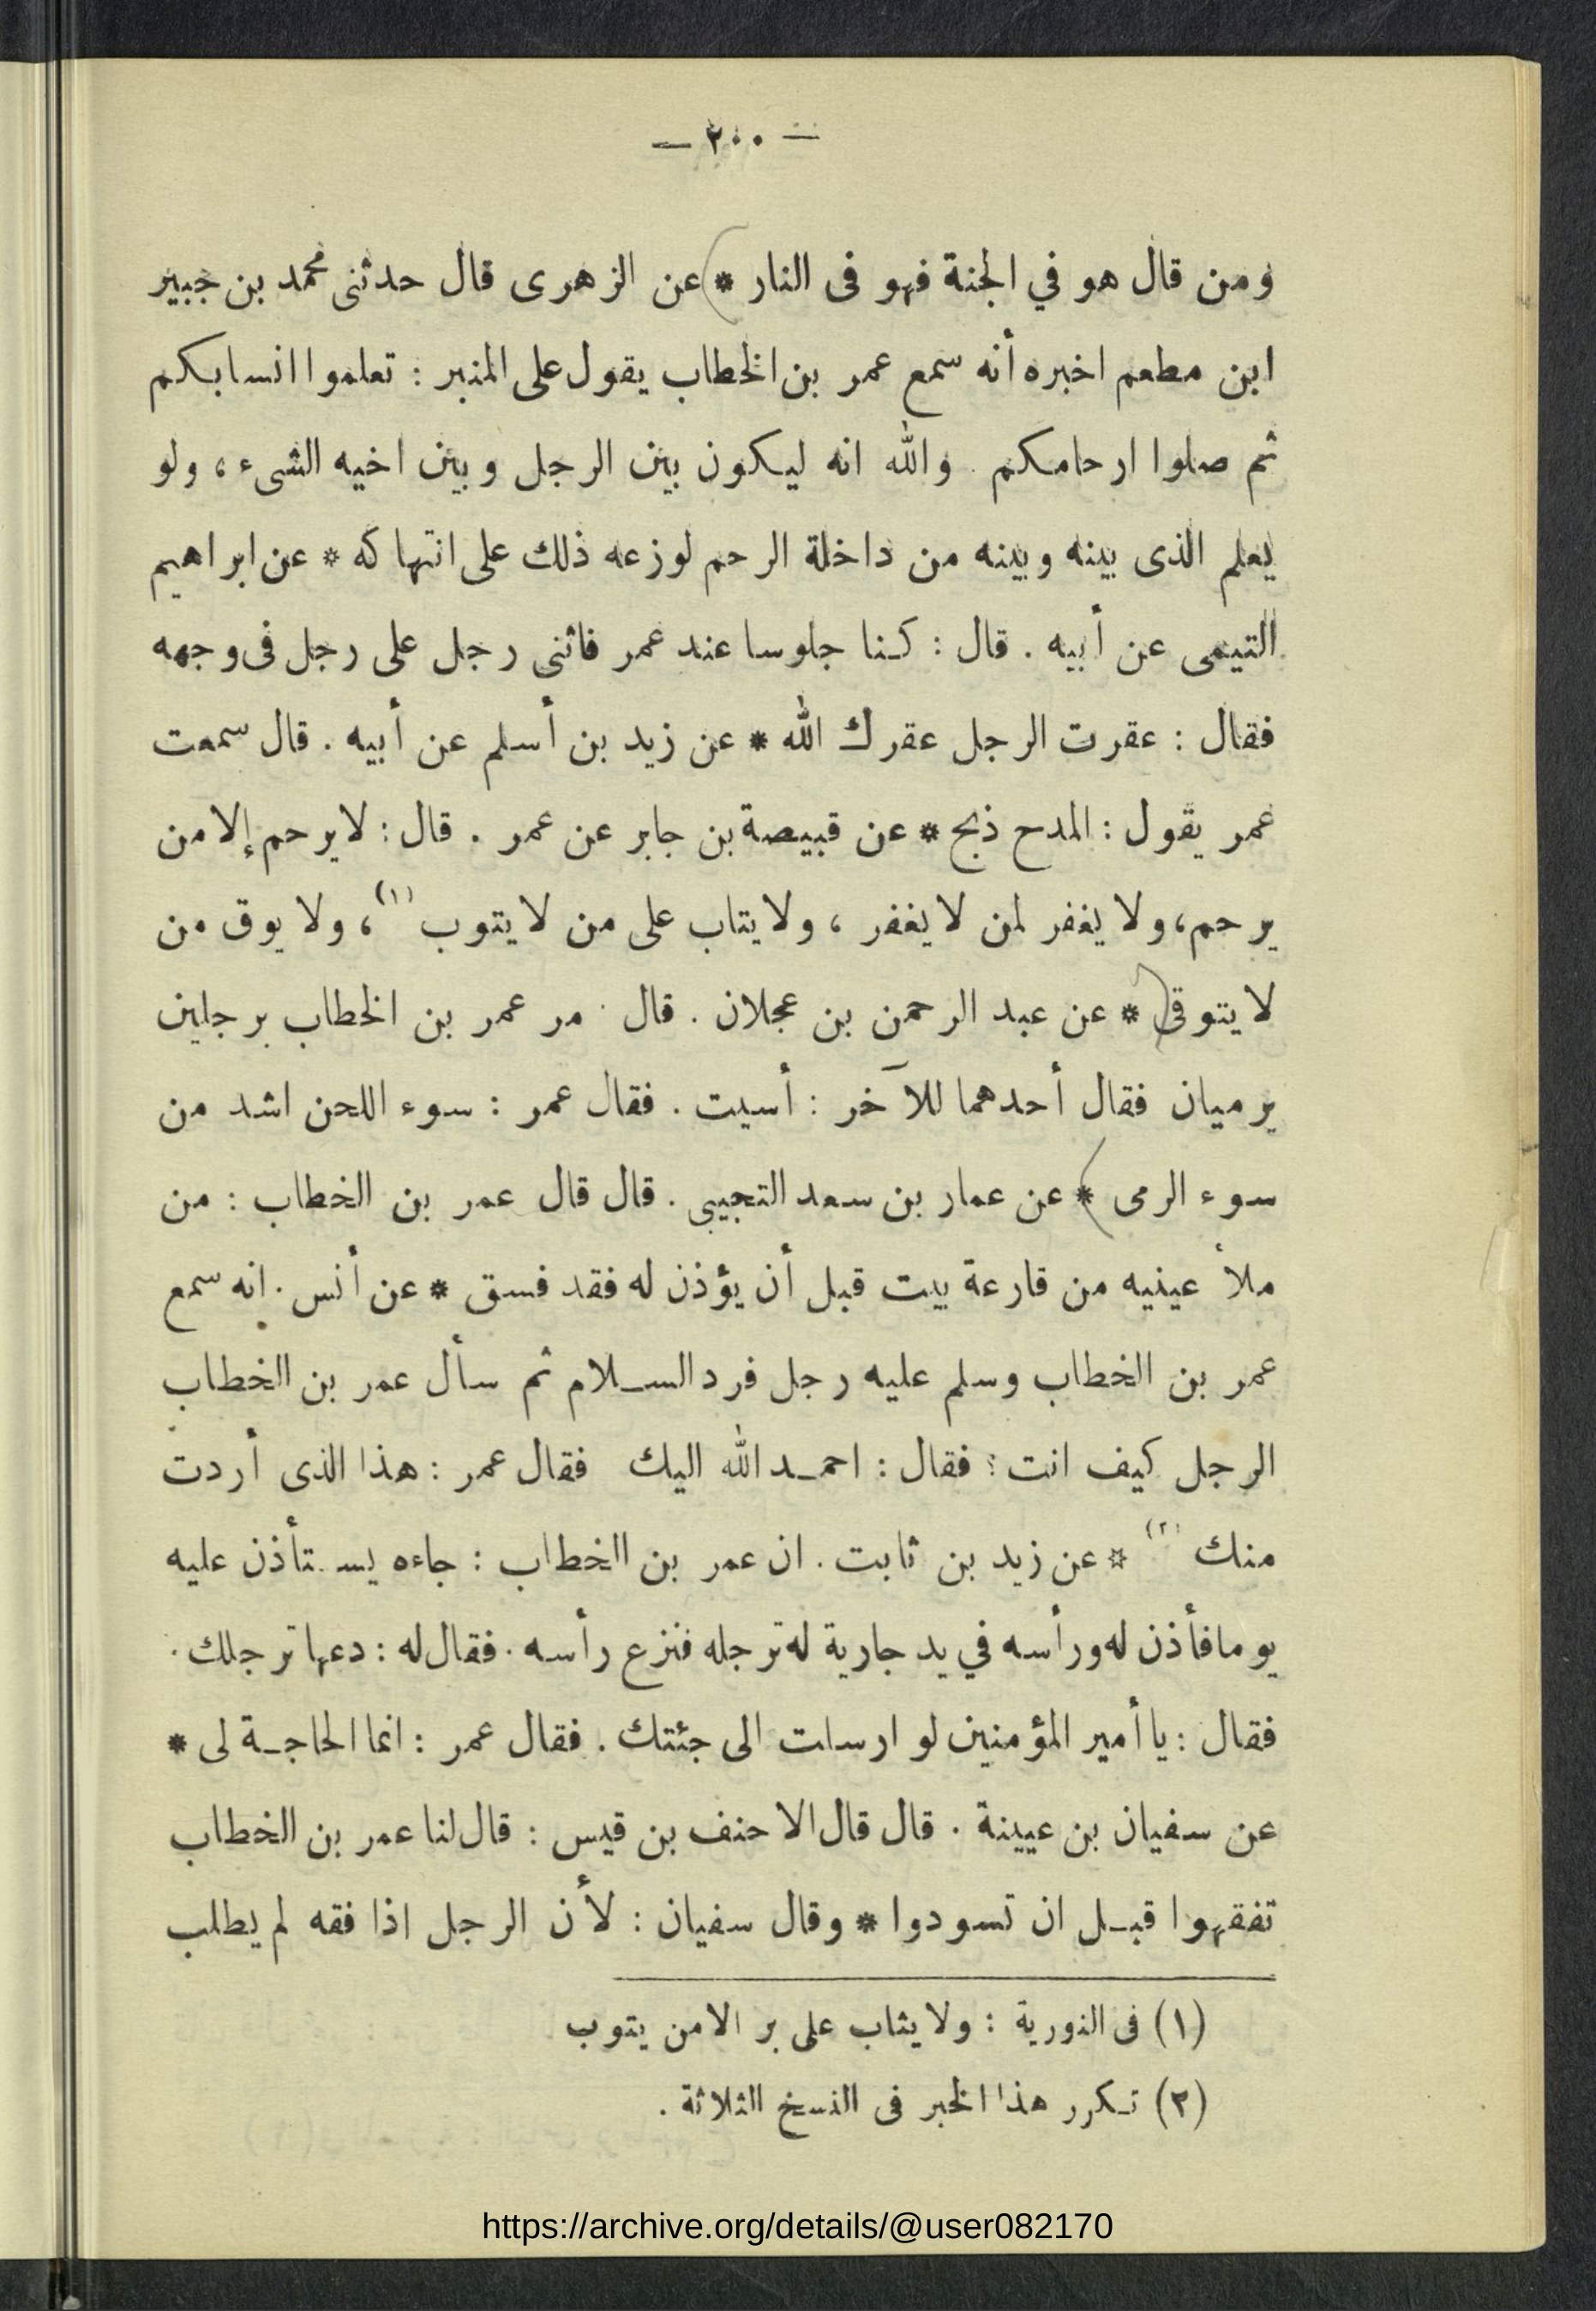 — ٢٠٠ —
ومن قال هو في الجنة فهو فى النار * عن الزهرى قال حدثنى محمد بن جبير
ابن مطعم اخبره أنه سمع عمر بن الخطاب يقول على المنبر : تعلموا انسابكم
ثم صلوا ارحامكم . والله انه ليكون بين الرجل وبين اخيه الشىء ، ولو
يعلم الذى بينه وبينه من داخلة الرحم لوزعه ذلك على انتهاكه * عن ابراهيم
التيمى عن أبيه . قال : كنا جلوسا عند عمر فاثنى رجل على رجل فى وجهه
فقال : عقرت الرجل عقرك الله * عن زيد بن أسلم عن أبيه . قال سمعت
عمر يقول : المدح ذبح * عن قبيصة بن جابر عن عمر . قال : لا يرحم إلا من
يرحم ، ولا يغفر لمن لا يغفر ، ولا يتاب على من لا يتوب (١) ، ولا يوق من
لا يتوقى * عن عبد الرحمن بن عجلان . قال مر عمر بن الخطاب برجلين
يرميان فقال أحدهما للآخر : أسيت . فقال عمر : سوء اللحن اشد من
سوء الرمى * عن عمار بن سعد التجيبى . قال قال عمر بن الخطاب : من
ملأ عينيه من قارعة بيت قبل أن يؤذن له فقد فسق * عن أنس . انه سمع
عمر بن الخطاب وسلم عليه رجل فرد السلام ثم سأل عمر بن الخطاب
الرجل كيف انت ؟ فقال : احمد الله اليك فقال عمر : هذا الذى أردت
منك (٢) * عن زيد بن ثابت . ان عمر بن الخطاب : جاءه يستأذن عليه
يوما فأذن له ورأسه في يد جارية له ترجله فنزع رأسه . فقال له : دعها ترجلك .
فقال : يا أمير المؤمنين لو ارسلت الى جئتك . فقال عمر : انما الحاجة لى *
عن سفيان بن عيينة . قال قال الاحنف بن قيس : قال لنا عمر بن الخطاب
تفقهوا قبل ان تسودوا * وقال سفيان : لأن الرجل اذا فقه لم يطلب
(١) فى النورية : ولا يثاب على بر الا من يتوب
(٢) تكرر هذا الخبر فى النسخ الثلاثة .
https://archive.org/details/@user082170